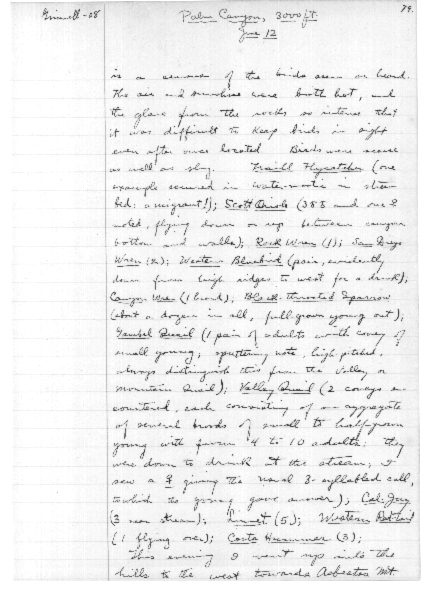 Grinnell-08
79.
Palm Canyon, 3000 ft.
June 12
is a census of the birds seen or heard.
The air and sunshine were both hot, and
the glare from the rocks so intense that
it was difficult to keep birds in sight
even after once located. Birds were scarce
as well as shy. Traill Flycatcher (one
example secured in water-motie in stream
bed: a migrant!); Scott Oriole (3 ♂♂ and one ♀
noted, flying down or up between canyon
bottom and walls); Rock Wren (1); San Diego
Wren (2); Western Bluebird (pair, evidently
down from high ridges to west for a drink);
Canyon Wren (1 heard); Black-throated Sparrow
(about a dozen in all, full-grown young out);
Gambel Quail (1 pair of adults with covey of
small young; sputtering note, high pitched,
always distinguish this from the Valley or
Mountain Quail); Valley Quail (2 coveys en-
countered, each consisting of an aggregate
of several broods of small to half-grown
young with from 4 to 10 adults: they
were down to drink at the stream; I
saw a ♀ giving the usual 3-syllabled call,
to which the young gave answer); Cal. Jay
(3 near stream); Linnet (5); Western Redtail
(1 flying over); Costa Hummer (3);
This evening I went up into the
hills to the west towards Asbestos Mt.